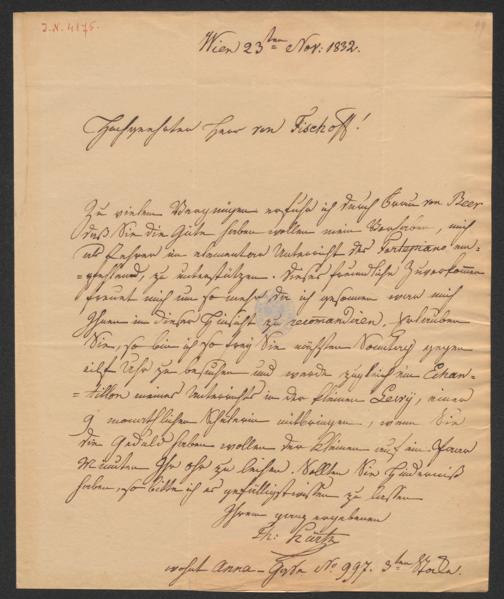 J.N. 4175.
Wien 23ten Nov. 1832.
Hochgeehrter Herr von Fischoff!
Zu vielem Vergnügen erfuhr ich durch Frau von Beer
daß Sie die Güte haben wollen mein Vorhaben, mich
als Lehrer im elementar Unterricht des Fortepiano em-
-pfehlend, zu unterstützen. Dieses freundliche Zuvorkommen
freuet mich um so mehr da ich gesonnen war mich
Ihnen in dieser Hinsicht zu recomandiren. Erlauben
Sie, so bin ich so frey Sie nächsten Sonntag gegen
eilf Uhr zu besuchen und werde zugleich ein Echan-
-tillon meines Unterrichts in der kleinen Lewy, einer
9 monathlichen Schülerin mitbringen, wenn Sie
die Geduld haben wollen der Kleinen auf ein Paar
Minuten Ihr Ohr zu leihen. Sollten Sie Hinderniß
haben, so bitte ich es gefälligst wissen zu lassen
Ihrem ganz ergebenen
Th: Kurtz
wohnt Anna-Gasse No 997. 3ten Stock.